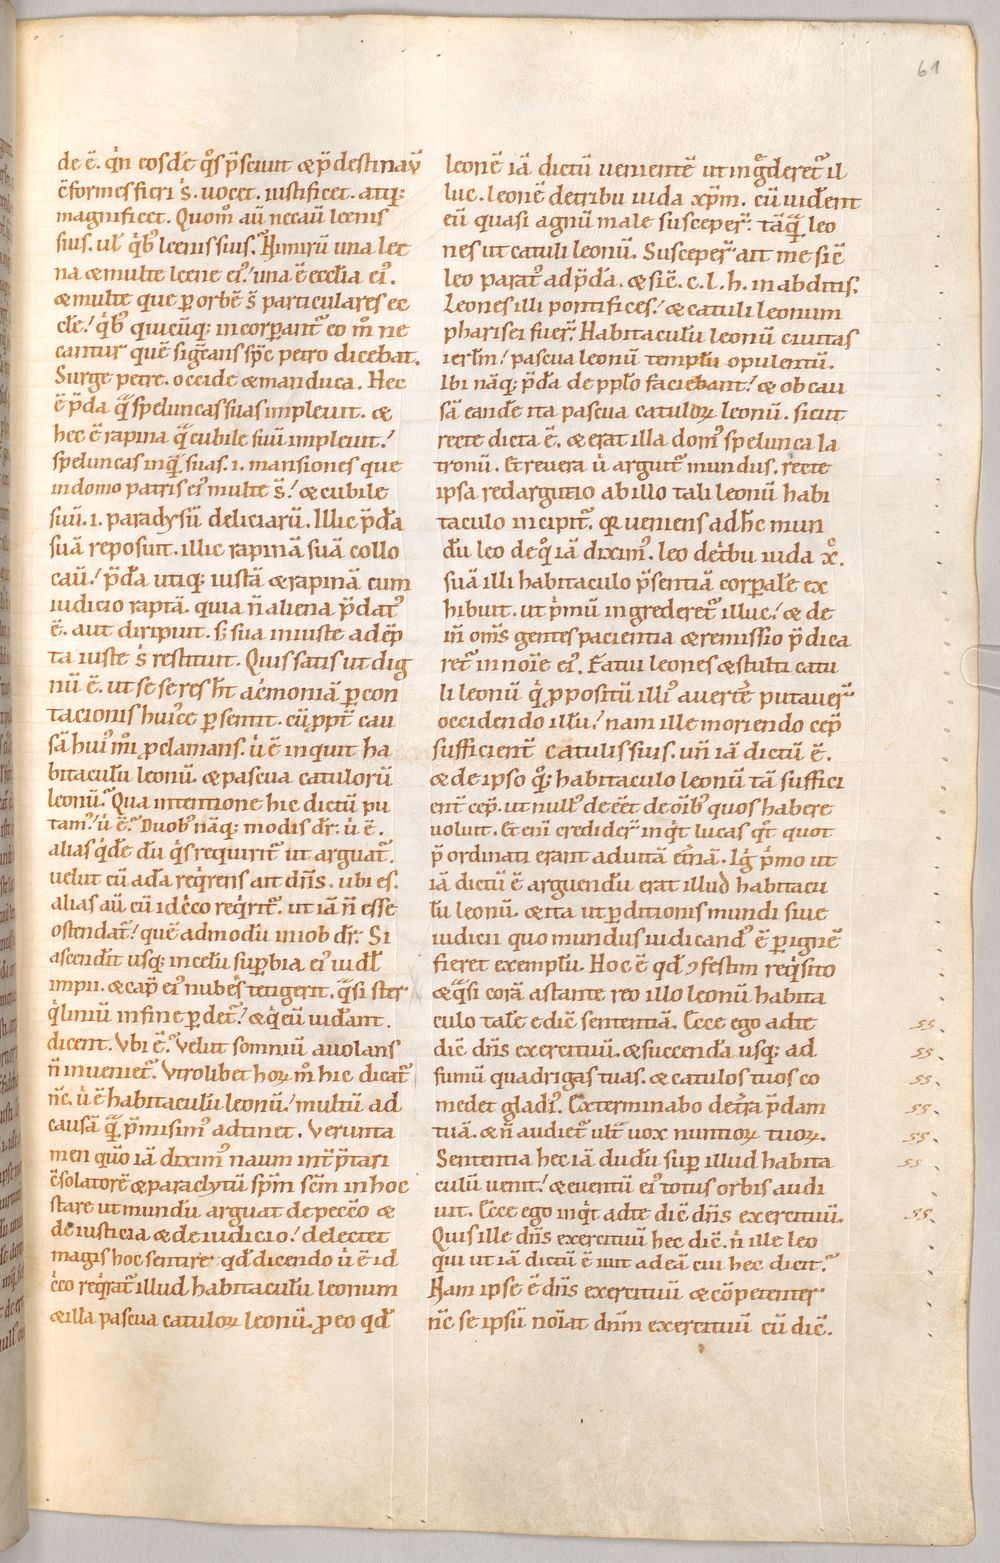 61
de ē. qͥn eosdē qͦs p̄sciuit & p̄destinaū
cͻformes fieri s̄. uocet. iustificet. atq;
magnificet. Quom̊ aū necauit leenis
suis. ul̄ qͥbꝰ leenis suis? Nimirū una lee
na & multe leene eiꝰ! una ē eccl̄ia eiꝰ.
& multe que per orbē s̄ particulares ec
cl̄e! qͥbꝰ quicūq; incorporant᷑ eo m̊ ne
cantur quē significans sp̄c petro dicebat.
Surge petre. occide & manduca. Hec
ē p̄da qᷓ speluncas suas impleuit. &
hec ē rapina qᷓ cubile suū impleuit!
speluncas inqͣ suas. i. mansiones que
in domo patris eiꝰ multe s̄! & cubile
suū. i. paradysū deliciarū. Illic p̄dā
suā reposuit. illic rapinā suā collo
cauit! p̄dā utiq; iustā & rapinā cum
iudicio raptā. quia n̄ aliena p̄datꝰ
ē. aut diripuit. s; sua iniuste adep
ta iuste s; restituit. Quis satis ut dig
nū ē. ut sese res h̄t acͥmoniā percon
tacionis huiꝰce persentit. cū ꝓpt̄ cau
sā huiꝰm̊i ꝓclamans. uͥ ē inquit ha
bitacl̄m leonū. & pascua catulorū
leonū? Qua intentione hic dictū pu
tamꝰ! uͥ ē? Duobꝰ nāq; modis dr̄. uͥ ē.
alias qͥdē dū qͥs requirit᷑ ut arguat᷑.
uelut cū adā reqͥrens ait dn̄s. ubi es.
alias aū cū idcͥco reqͥrit᷑. ut iā n̄ esse
ostendat᷑! quē admodū in iob dr̄. Si
ascend̄it usq; in celū superbia eiꝰ
impii. & cap̄ eiꝰ nubes tetigerit. qͣsi ster
qͥliniū in fine perdet᷑! & qͥ eū uid̄ant.
dicent. Vbi ē? Velut somniū auolans
n̄ inueniet᷑. Vtrolibet horꝝ m̊ hic dicat᷑
nc̄. uͥ ē habitaculū leonū! multū ad
causā qͣ p̄misimꝰ adtinet. Verunta
men quō iā diximꝰ naum int̄p̄tari
cͻsolatorē & paraclytū sp̄m sc̄m in hoc
stare ut mundū arguat de pecc̄o &
de iusticia & de iudicio! delectet
magis hoc sentire qd̄ dicendo uͥ ē id
cͥco reqͥrat᷑ illud habitaculū leonum
& illa pascua catulorꝝ leonū. ꝓ eo qd̄
leonē iā dictū uenientē ut ingͣderet᷑ il
luc. leonē de tribu iuda xp̄m. cū uid̄ent
eū quasi agnū male susceper̄. tāqͣ leo
nes ut catuli leonū. Susceper̄ ait me sic̄
leo parat᷑ ad p̄dā. & sic̄. c. l. h. in abditis.
Leones illi pontifices! & catuli leonum
pharisei fuer̄. Habitaculū leonū ciuitas
ierl̄m! pascua leonū templū opulentū.
Ibi nāq; p̄dā de pp̄lo faciebant! & ob cau
sā eandē ita pascua catulorꝝ leonū. sicut
recte dicta ē. & erat illa domꝰ spelunca la
tronū. Et reuera uͥ arguit᷑ mundus. recte
ipsa redargutio ab illo tali leonū habi
taculo incipit᷑. qꝛ ueniens ad hc̄ mun
dū leo de qͦ iā diximꝰ. leo de tͥbu iuda xͨ.
suā illi habitaculo p̄sentiā corporalē ex
hibuit. ut pͥmū ingrederet᷑ illuc! & de
in̄ om̄s gentes paciencia & remissio p̄dica
ret᷑ in noīe eiꝰ. Fatui leones & stulti catu
li leonū qͥ propositū illiꝰ auertē putauer᷑
occidendo illū! nam ille moriendo cep̄
sufficient̄ catulis suis. un̄ iā dictū ē.
& de ipso qͦꝫ habitaculo leonū tā suffici
ent̄ cep̄. ut nullꝰ deeēt de oīb; quos habere
uoluit. Et enī credider̄ inqͥt lucas qͦt quot
p̄ordinati erant ad uitā et̄nā. Igͥ pͥmo ut
iā dictū ē arguendū erat illud habitacu
lū leonū. & ita ut perditionis mundi siue
iudicii quo mundus iudicandꝰ ē per ignē
fieret exemplū. Hoc ē qd̄ cͻfestim reqͥsito
& qͣsi corā astante reo illo leonū habita
culo tale edic̄ sententiā. Ecce ego ad te
dic̄ dn̄s exercituū. & succendā usq; ad
fumū quadrigas tuas. & catulos tuos co
medet gladiꝰ. Exterminabo de tr̄a p̄dam
tuā. & n̄ audiet᷑ ult̄ uox nuntiorꝝ tuorꝝ.
Sententia hec iā dudū super illud habita
culū uenit! & euentū eiꝰ totus orbis audi
uit. Ecce ego inqͥt ad te dic̄ dn̄s exercituū.
Quis ille dn̄s exercituū hec dic̄. nͥ ille leo
qui ut iā dictū ē iuit ad eā cui hec dicit?
Nam ipse ē dn̄s exercituū & cōpetenter
nc̄ se ipsū noīat dn̄m exercituū cū dic̄.